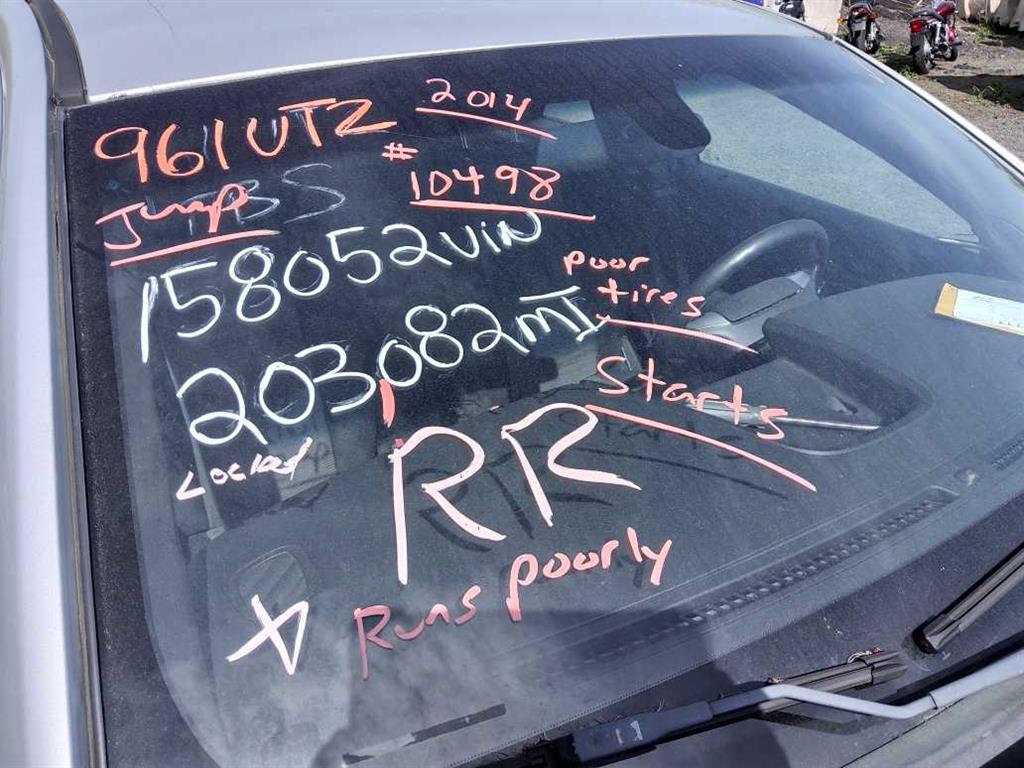 961UTZ
2014
#
10498
Jump
BS
158052VIN
poor
tires
203082MI
Starts
Locked
RR
Runs poorly